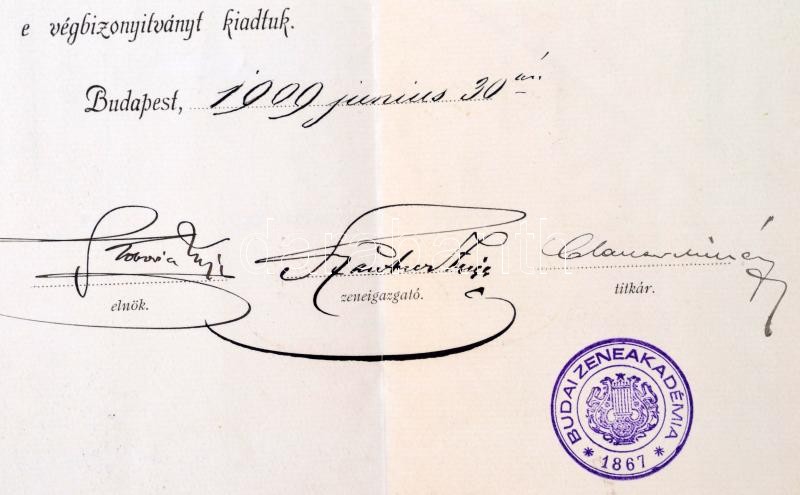 e végbizonyitványt kiadtuk.
Budapest, 1909 junius 30 án.
elnök.
zeneigazgató.
titkár.
BUDAI ZENEAKADÉMIA
* 1867 *